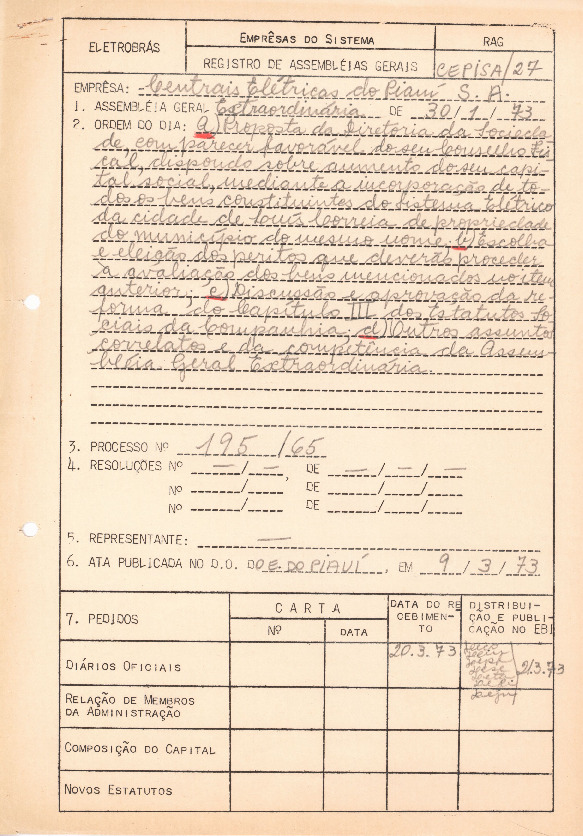 ELETROBRÁS
EMPRÊSAS DO SISTEMA
RAG
REGISTRO DE ASSEMBLÉIAS GERAIS
CEPISA/27
EMPRÊSA: Centrais Elétricas do Piauí S. A.
1. ASSEMBLÉIA GERAL Extraordinária DE 30/1/73
2. ORDEM DO DIA: a) Proposta da Diretoria da Sociedade
de com parecer favorável do seu Conselho Fis
cal, dispondo sobre aumento do seu capi
tal social, mediante a incorporação de to
dos os bens constituintes do Sistema Elétrico
da cidade de Luís Correia de propriedade
do município do mesmo nome, b) Escolha
e eleição dos peritos que deverão proceder
a avaliação dos bens mencionados no item
anterior; c) Discussão e aprovação da re
forma do Capítulo III dos Estatutos So
ciais da Companhia; d) Outros assuntos
correlatos e da competência da Assem-
bléia Geral Extraordinária.
3. PROCESSO Nº 195 /65
4. RESOLUÇÕES Nº — / — , DE — / — / —
Nº / DE / /
Nº / DE / /
5. REPRESENTANTE: —
6. ATA PUBLICADA NO D.O. DO E. DO PIAUÍ , EM 9 / 3 / 73
7. PEDIDOS
CARTA
Nº
DATA
DATA DO RE
CEBIMEN-
TO
DISTRIBUI-
ÇÃO E PUBLI-
CAÇÃO NO EBI
DIÁRIOS OFICIAIS
20.3.73
21.3.73
RELAÇÃO DE MEMBROS
DA ADMINISTRAÇÃO
COMPOSIÇÃO DO CAPITAL
NOVOS ESTATUTOS